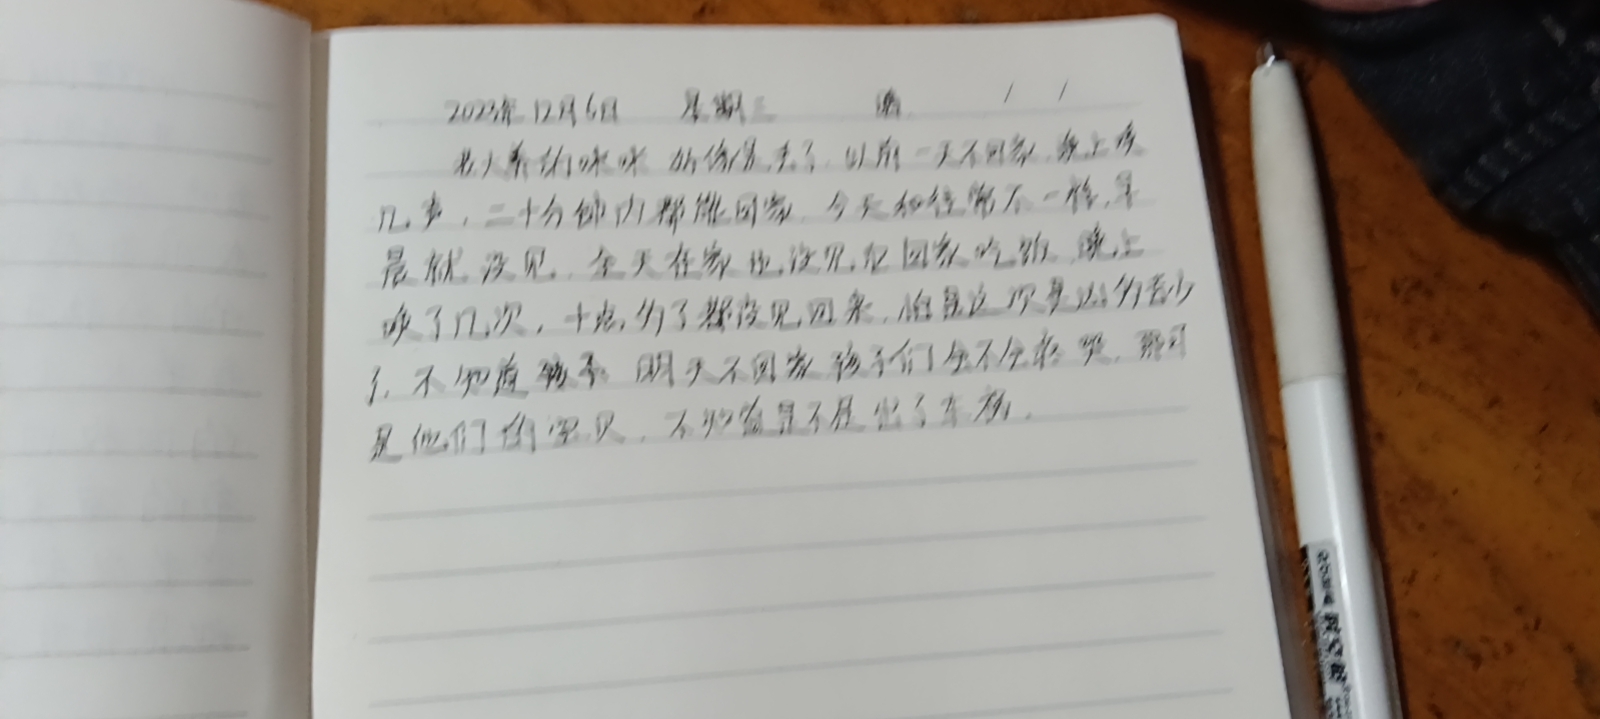 2023年12月6日 星期三 晴
养的咪咪好像丢了,以前一天不回家,晚上唤
几声,二十分钟内都能回家,今天和往常不一样,早
晨就没见,全天在家也没见它回家吃饭,晚上
唤了几次,十点多了都没见回来,怕是这次是凶多吉少
了,不知道孩子明天不回家孩子们会不会 哭,那可
是他们的宝贝,不知道是不是出了车祸.